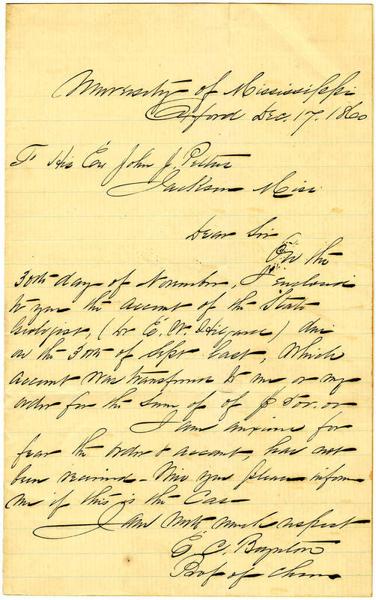 University of Mississippi
Oxford Dec. 17. 1860
To His Ex John J. Pettus
Jackson Miss
Dear Sir
On the
30th day of November, I enclosed
to you the account of the State
Geologist, (Dr E. W. Hilgard) due
on the 30th of Sept last, which
account was transferred to me or my
order for the sum of of
I am anxious for
fear the order & account, has not
been received - Will you please inform
me if this is the Case
I am with much respect
E. C. Boynton
Prof of Chem